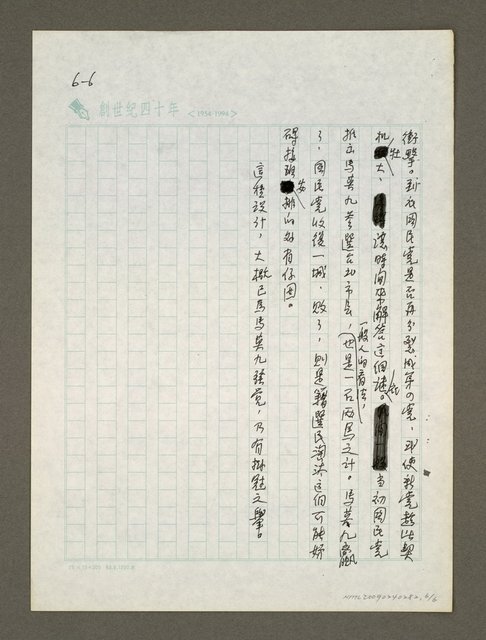 6-6
創世紀四十年 <1954-1994>
衝擊。到底國民黨是否再分裂成第四黨，或使新黨趁此契
機壯大，讓時間來解答這個謎。當初國民黨
推出馬英九參選台北市長，一般人的看法，也是一石兩鳥之計。馬英九贏
了，國民黨收復一城，敗了，則是藉選民淘汰這個可能妨
礙接班安排的好有仔囝。
這種設計，大概已為馬英九發覺，乃有掛冠之舉。
25×12=300
NMTL20090240282, 6/6